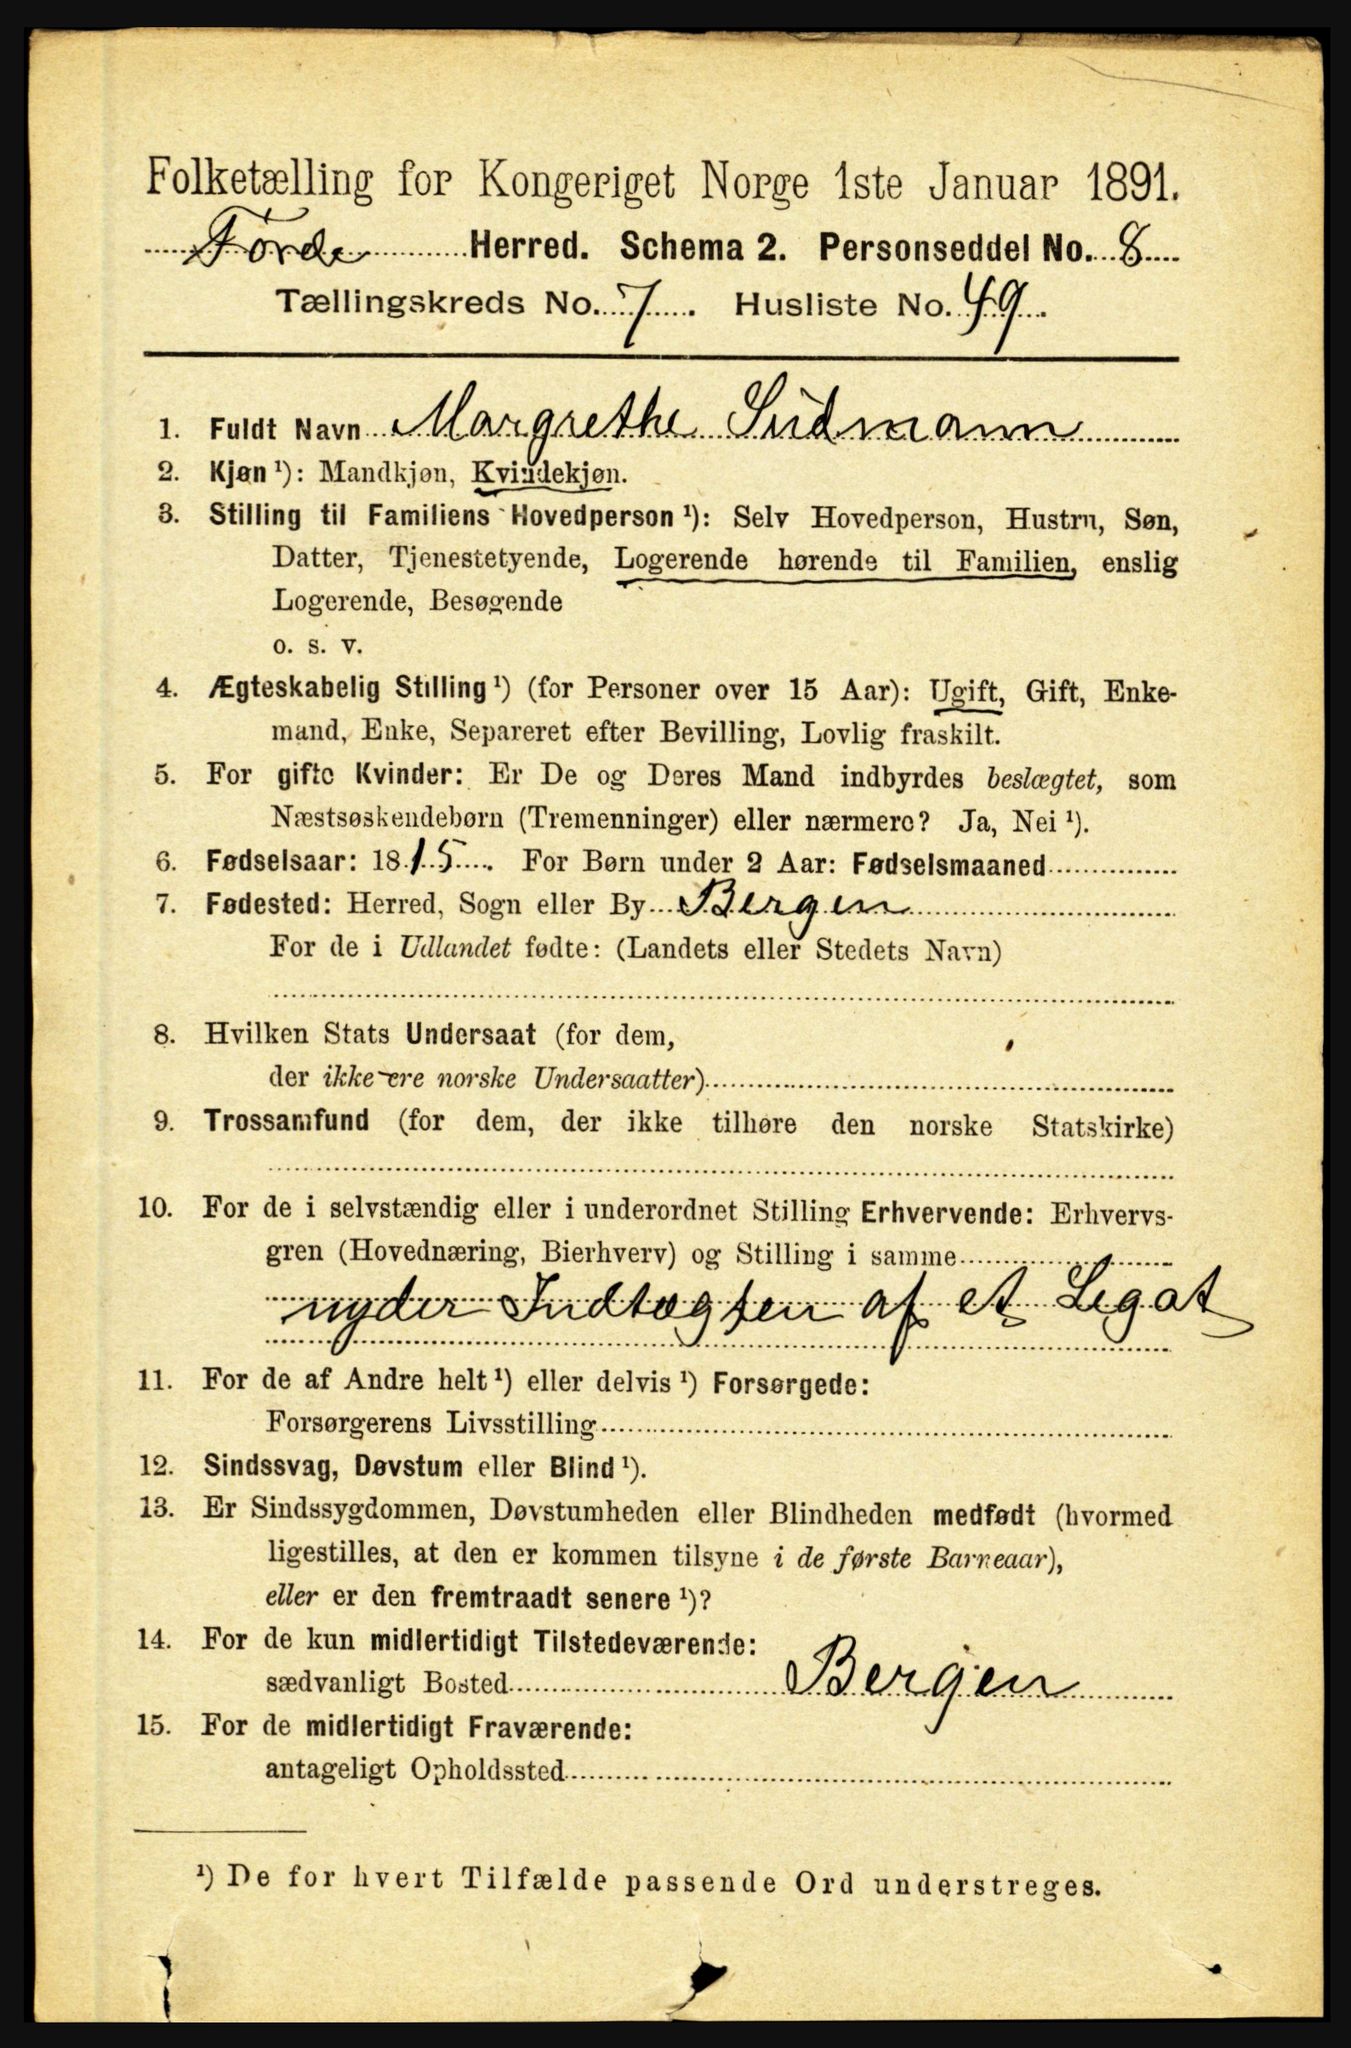 Folketælling for Kongeriget Norge 1ste Januar 1891.
Førde Herred. Schema 2. Personseddel No. 8
Tællingskreds No. 7. Husliste No. 49.
1. Fuldt Navn Margrethe Südmann
2. Kjøn ¹): Mandkjøn, Kvindekjøn.
3. Stilling til Familiens Hovedperson ¹): Selv Hovedperson, Hustru, Søn,
Datter, Tjenestetyende, Logerende hørende til Familien, enslig
Logerende, Besøgende
o. s. v.
4. Ægteskabelig Stilling ¹) (for Personer over 15 Aar): Ugift, Gift, Enke-
mand, Enke, Separeret efter Bevilling, Lovlig fraskilt.
5. For gifte Kvinder: Er De og Deres Mand indbyrdes beslægtet, som
Næstsøskendebørn (Tremenninger) eller nærmere? Ja, Nei ¹).
6. Fødselsaar: 1815. For Børn under 2 Aar: Fødselsmaaned
7. Fødested: Herred, Sogn eller By Bergen
For de i Udlandet fødte: (Landets eller Stedets Navn)
8. Hvilken Stats Undersaat (for dem,
der ikke ere norske Undersaatter)
9. Trossamfund (for dem, der ikke tilhøre den norske Statskirke)
10. For de i selvstændig eller i underordnet Stilling Erhvervende: Erhvervs-
gren (Hovednæring, Bierhverv) og Stilling i samme
nyder Indtægten af et Legat
11. For de af Andre helt ¹) eller delvis ¹) Forsørgede:
Forsørgerens Livsstilling
12. Sindssvag, Døvstum eller Blind ¹).
13. Er Sindssygdommen, Døvstumheden eller Blindheden medfødt (hvormed
ligestilles, at den er kommen tilsyne i de første Barneaar),
eller er den fremtraadt senere ¹)?
14. For de kun midlertidigt Tilstedeværende:
sædvanligt Bosted Bergen
15. For de midlertidigt Fraværende:
antageligt Opholdssted
¹) De for hvert Tilfælde passende Ord understreges.